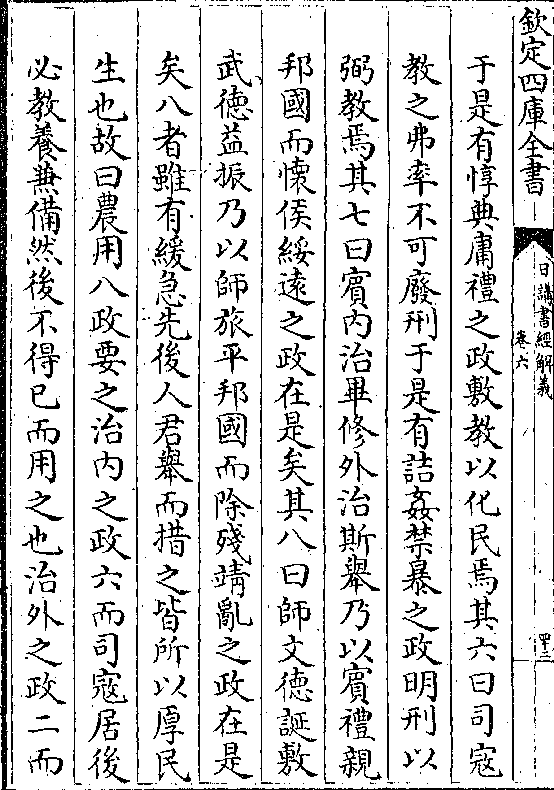 欽定四庫全書
日講書經解義
卷六
四十三
于是有惇典庸禮之政敷教以化民焉其六曰司寇
教之弗率不可廢刑于是有詰姦禁暴之政明刑以
弼教焉其七曰賓内治畢修外治斯舉乃以賓禮親
邦國而懷侯綏遠之政在是矣其八曰師文德誕敷
武德益振乃以師旅平邦國而除殘靖亂之政在是
矣八者雖有緩急先後人君舉而措之皆所以厚民
生也故曰農用八政要之治内之政六而司寇居後
必教養兼備然後不得已而用之也治外之政二而